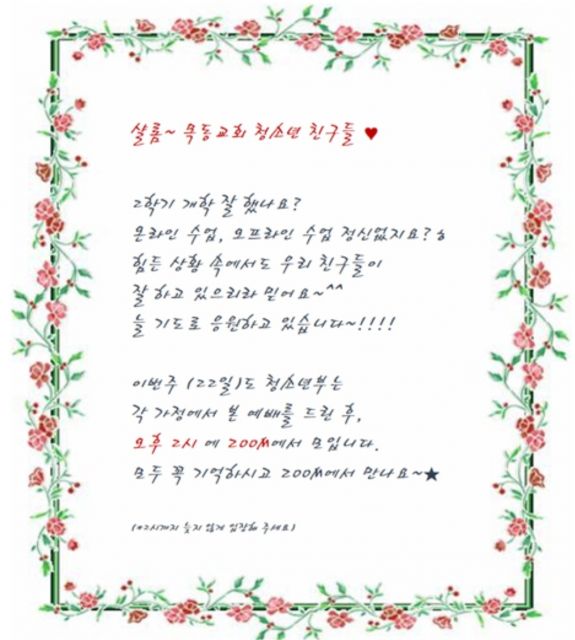 샬롬~ 목동교회 청소년 친구들 ♥
2학기 개학 잘 했나요?
온라인 수업, 오프라인 수업 정신없지요?ㅎ
힘든 상황 속에서도 우리 친구들이
잘 하고 있으리라 믿어요~^^
늘 기도로 응원하고 있습니다~!!!!
이번주 (22일)도 청소년부는
각 가정에서 본 예배를 드린 후,
오후 2시 에 ZOOM에서 모입니다.
모두 꼭 기억하시고 ZOOM에서 만나요~★
(*2시까지 늦지 않게 입장해 주세요)